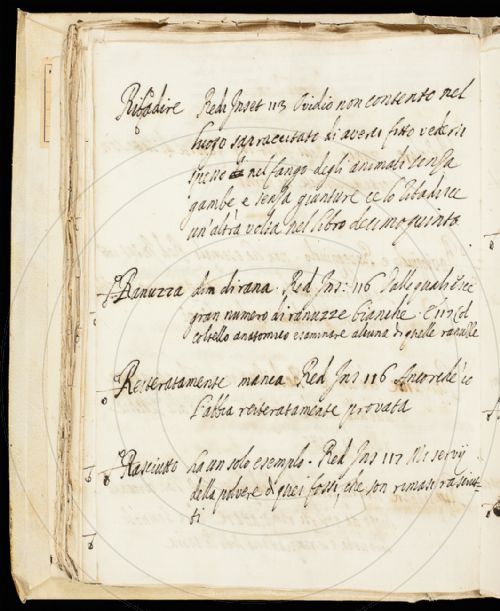 Ribadire Redi Inset 113 Ovidio non contento nel
luogo sopraccitato di averci fatto vedere
nel fango degli animali senza
gambe e senza giunture ce lo ribadisce
un'altra volta nel libro decimoquinto
Ranuzza dim. di rana. Red. Ins: 116 Dalle quali
gran numero di ranuzze bianche. E 117 Col
coltello anatomico esaminare alcuna di quelle ranuzze
Reiteratamente manca Red Ins 116 Ancorchè io
l'abbia reiteratamente provata
Rasciutto ha un solo esempio. Red Ins 117 Mi servij
della polvere di quei fossi, che son rimasi rasciut-
ti